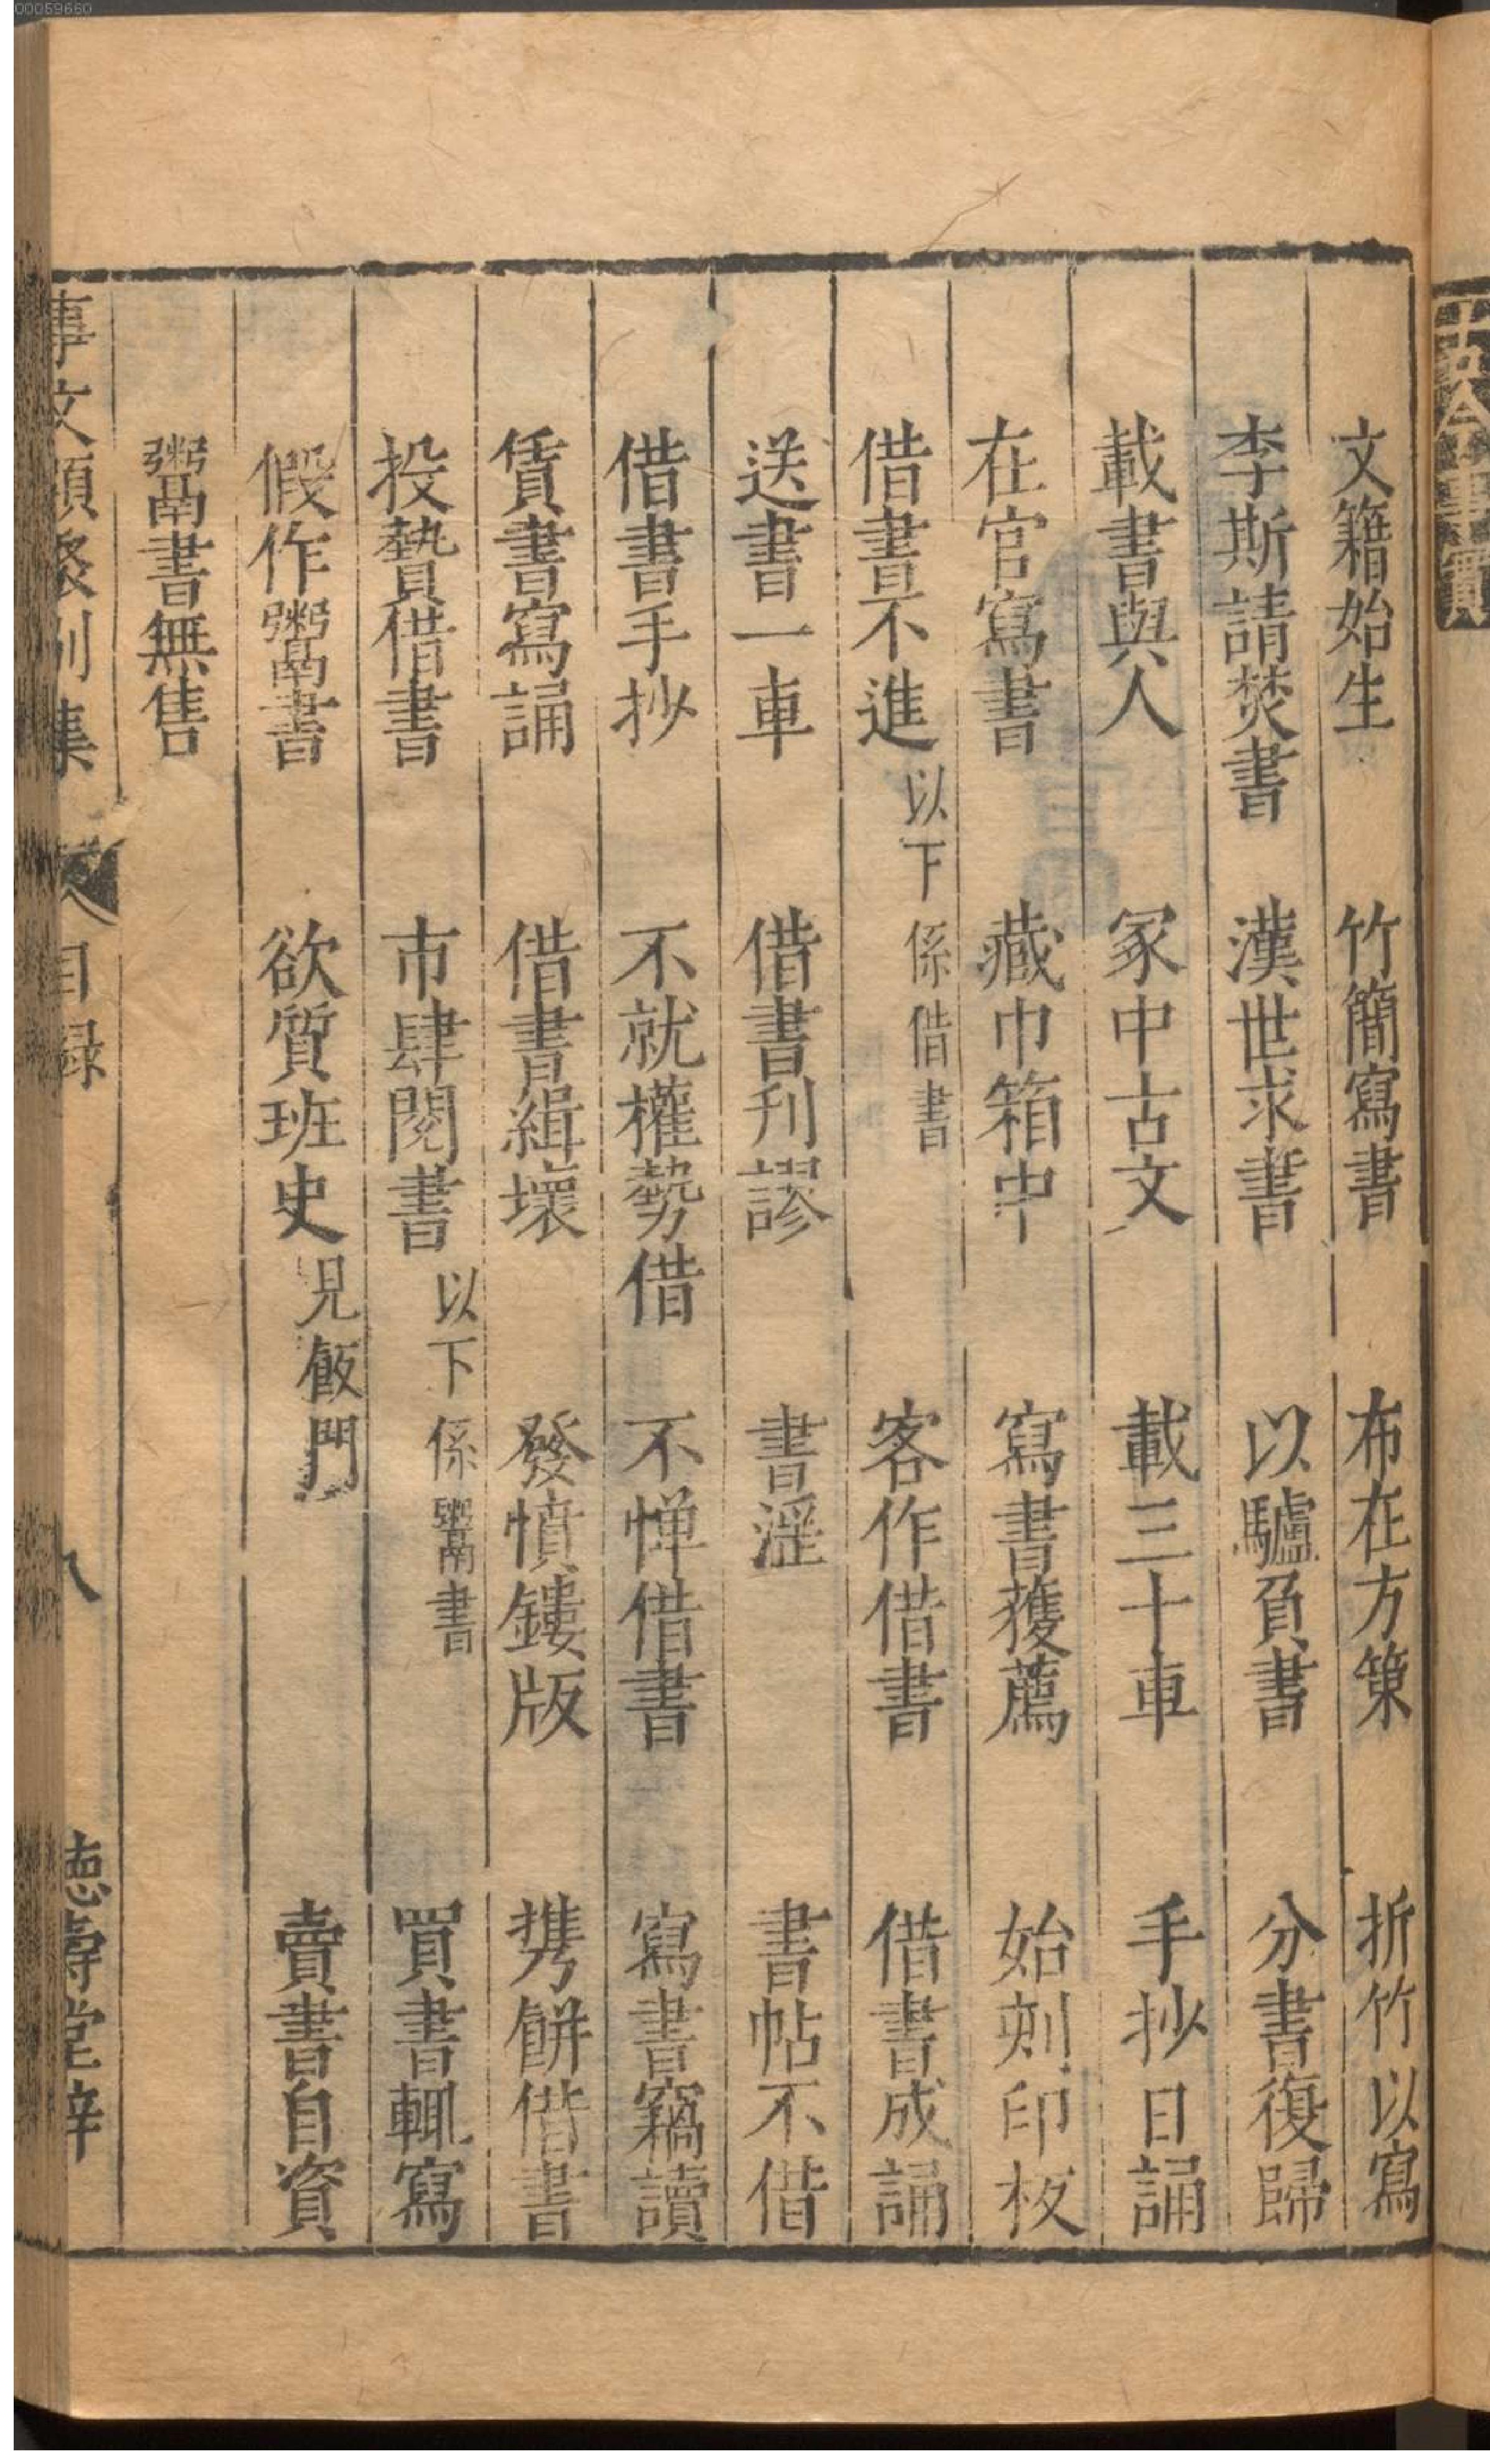 文籍始生　竹簡寫書　布在方策　折竹以寫
李斯請焚書　漢世求書　以驢負書　分書復歸
載書與人　冢中古文　載三十車　手抄日誦
在官寫書　藏巾箱中　寫書獲薦　始刻印板
借書不進以下係借書　客作借書　借書成誦
送書一車　借書刊謬　書淫　書帖不借
借書手抄　不就權勢借　不憚借書　寫書竊讀
賃書寫誦　借書緝壞　發憤鏤版　携餅借書
投贄借書　市肆閱書以下係鬻書　買書輒寫
假作鬻書　欲質班史見飯門　賣書自資
鬻書無售
事文類聚別集　目録　八　徳壽堂梓
00059660